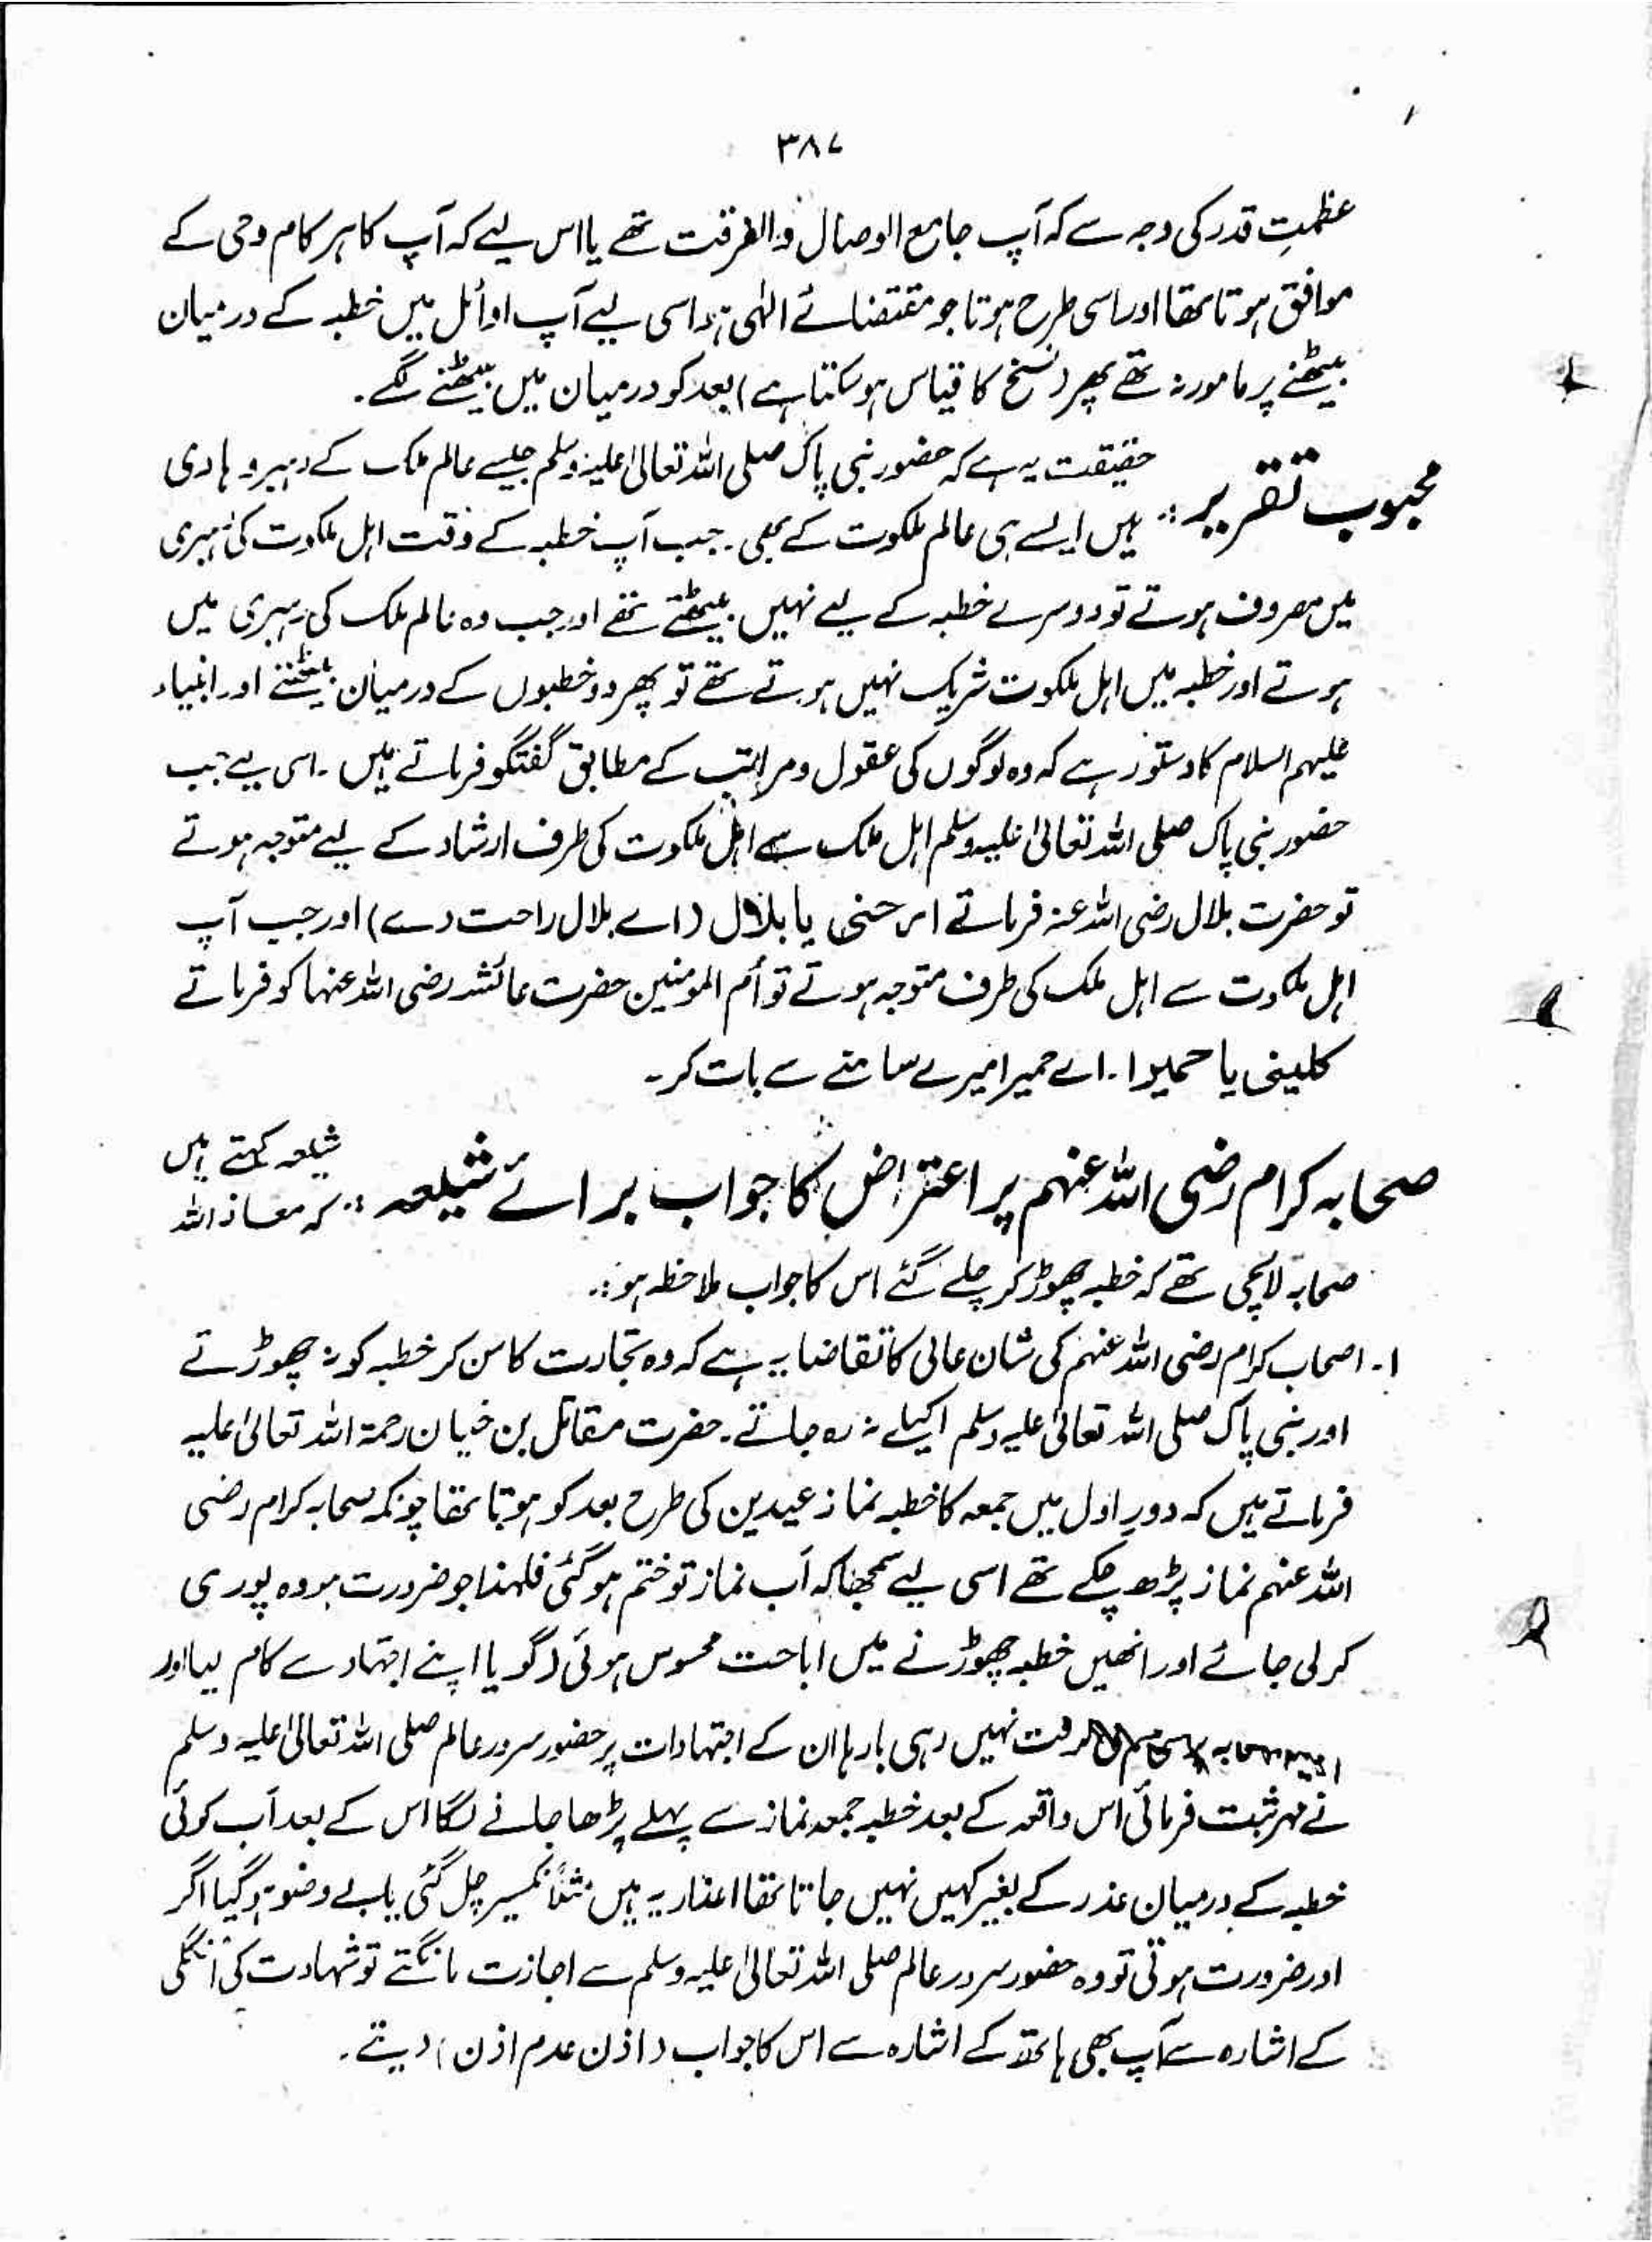 ۳۸۷
عظمتِ قدر کی وجہ سے کہ آپ جامع الوصال والفرقت تھے یا اس لیے کہ آپ کا ہر کام وحی کے
موافق ہوتا تھا اور اسی طرح ہوتا جو مقتضائے الٰہی ہو اسی لیے آپ اوائل میں خطبہ کے درمیان
بیٹھنے پر مامور نہ تھے پھر (نسخ کا قیاس ہو سکتا ہے) بعد کو درمیان میں بیٹھنے لگے۔
محبوب تقریر :۔ حقیقت یہ ہے کہ حضور نبی پاک صلی اللہ تعالیٰ علیہ وسلم جیسے عالم ملک کے رہبر و ہادی
ہیں ایسے ہی عالم ملکوت کے بھی۔ جب آپ خطبہ کے وقت اہل ملکوت کی رہبری
میں مصروف ہوتے تو دوسرے خطبہ کے لیے نہیں بیٹھتے تھے اور جب وہ عالم ملک کی رہبری میں
ہوتے اور خطبہ میں اہل ملکوت شریک نہیں ہوتے تھے تو پھر دو خطبوں کے درمیان بیٹھتے اور انبیاء
علیہم السلام کا دستور ہے کہ وہ لوگوں کی عقول و مراتب کے مطابق گفتگو فرماتے ہیں۔ اسی لیے جب
حضور نبی پاک صلی اللہ تعالیٰ علیہ وسلم اہل ملک سے اہل ملکوت کی طرف ارشاد کے لیے متوجہ ہوتے
تو حضرت بلال رضی اللہ عنہ فرماتے ارحنی یا بلال (اے بلال راحت دے) اور جب آپ
اہل ملکوت سے اہل ملک کی طرف متوجہ ہوتے تو اُم المومنین حضرت عائشہ رضی اللہ عنہا کو فرماتے
کلمینی یا حمیرا۔ اے حمیرا میرے سامنے سے بات کر۔
صحابہ کرام رضی اللہ عنہم پر اعتراض کا جواب برائے شیعہ :۔ شیعہ کہتے ہیں
کہ معاذ اللہ
صحابہ لالچی تھے کہ خطبہ چھوڑ کر چلے گئے اس کا جواب ملاحظہ ہو :۔
۱۔ اصحاب کرام رضی اللہ عنہم کی شان عالی کا تقاضا یہ ہے کہ وہ تجارت کا سن کر خطبہ کو نہ چھوڑتے
اور نبی پاک صلی اللہ تعالیٰ علیہ وسلم اکیلے نہ رہ جاتے۔ حضرت مقاتل بن حیان رحمۃ اللہ تعالیٰ علیہ
فرماتے ہیں کہ دورِ اول میں جمعہ کا خطبہ نماز عیدین کی طرح بعد کو ہوتا تھا چونکہ صحابہ کرام رضی
اللہ عنہم نماز پڑھ چکے تھے اسی لیے سمجھا کہ اب نماز تو ختم ہو گئی فلہذا جو ضرورت ہو وہ پوری
کر لی جائے اور انھیں خطبہ چھوڑنے میں اباحت محسوس ہوئی (گویا اپنے اجتہاد سے کام لیا اور
نہیں رہی بارہا ان کے اجتہادات پر حضور سرور عالم صلی اللہ تعالیٰ علیہ وسلم
نے مہر ثبت فرمائی اس واقعہ کے بعد خطبہ جمعہ نماز سے پہلے پڑھا جانے لگا اس کے بعد اب کوئی
خطبہ کے درمیان عذر کے بغیر کہیں نہیں جاتا تھا اعذار یہ ہیں مثلاً نکسیر چل گئی یا بے وضو ہو گیا اگر
اور ضرورت ہوتی تو وہ حضور سرور عالم صلی اللہ تعالیٰ علیہ وسلم سے اجازت مانگتے تو شہادت کی انگلی
کے اشارہ سے آپ بھی ہاتھ کے اشارہ سے اس کا جواب (اذن عدم اذن) دیتے۔